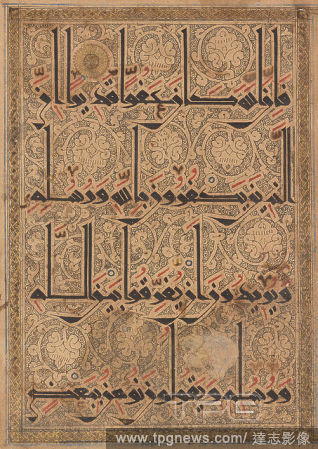 فان الله كان عفوا قديرا ان
الذين يكفرون بالله ورسله
ويريدون ان يفرقوا بين الله
ورسله ويقولون نومن ببعض
www.tpgnews.com/ 達志影像